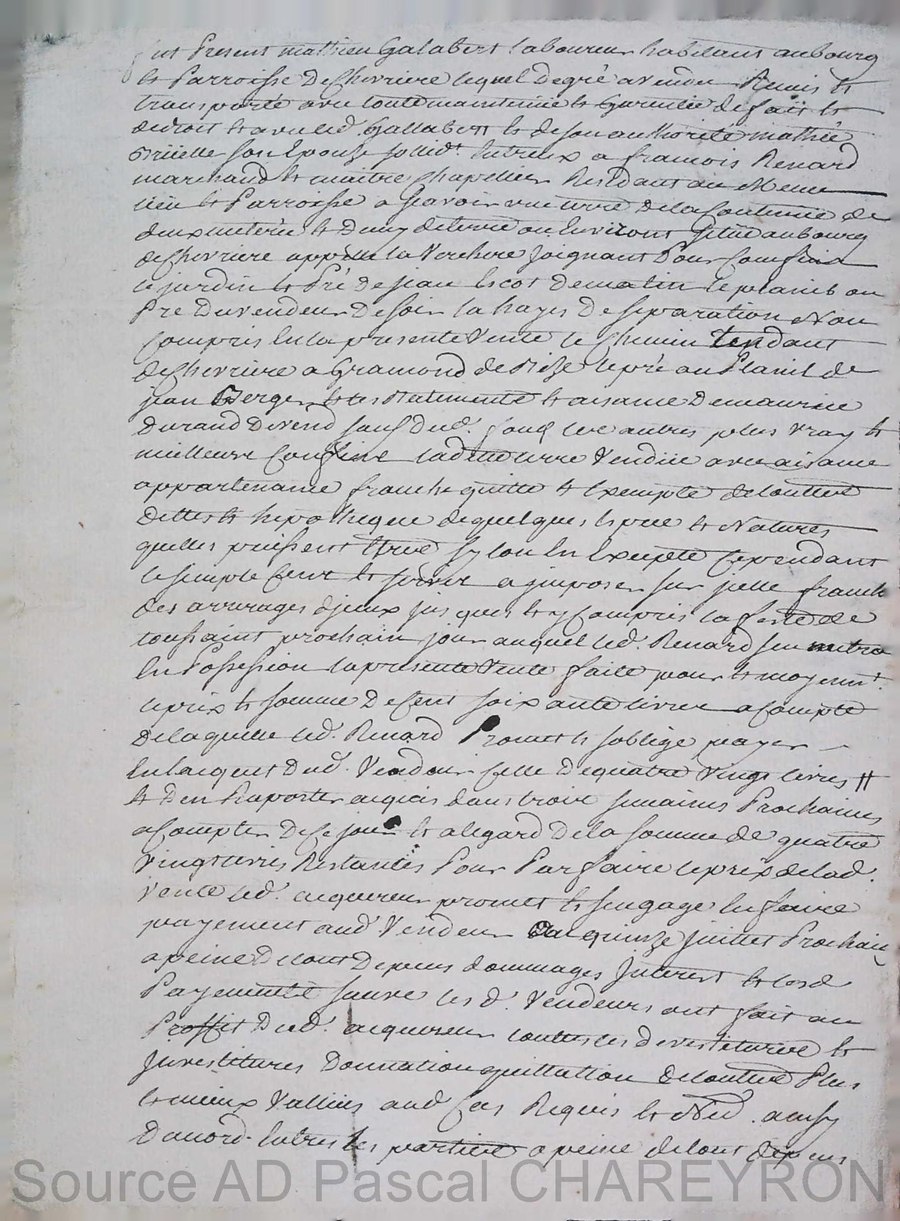 fut Present mathieu Galabert laboureur habitant au bourg
& Parroisse De Chevriere lequel de gré a vendu Remis &
transporté avec toute maintenue & Garentie de fait &
de droit & avec led. Gallabert & de son authorité mathie
son Epouze sollid.t entreux a francois Renard
marchand & maitre chapellier Residant au Meme
lieu & Parroisse a Scavoir une terre De la Contenue de
deux meterée & demy de terre ou Environt Scitué au bourg
de Chevriere appellé la Verchere joignant Pour Confins
le jardin & Pré de jean Escot De matin le planit ou
Pré Du vendeur De soir la hayes De separation Non
Compris En la presente Vente le Chemin tendant
de Chevriere a Gramond de bize le pré au Planit de
jean Berger & les Batiments & aisance De maurice
Durand De vend sauf Dud. Confins autres plus vray &
meilleurs Confins lad terre Vendüe avec aisance
appartenance franche quitte & Exempte de touttes
Dettes & hipotheque de quelques Espece & Natures
quelles puissent Etres sy lon En Excepte Cependant
le simple Cens & servis a imposer sur jcelle franche
des arrerages djceux jusques & y Compris la feste de
toussaint prochain jour auquel led. Renard sen mettra
En Possession la presente Vente faite pour & moyen.t
le prix & somme De Cent soixante livres a Compte
De laquelle led. Renard Promet & soblige payer
En lacquit Dud. Vendeur celle De quatre Vingt livres
& Den Raporter acquis dans trois semaines Prochaines
a Compter De Ce jour & a legard De la somme de quatre
Vingt livres Restantes Pour Parfaire le prix de lad.
Vente led. acquereur promet & sengage En faire
payement aud. Vendeur Au quinze juillet Prochain
a peine De tous Depens dommages Interest & lesd
Payements sauve les d. Vendeurs ont fait au
Proffit Dud. acquereur touttes les devestitures &
Investitures Donnation quittation De toutte Plus
& mieux Vallüe aud. Cas Requis & Neid. ainsy
Dacord. Entre les parties a peine de tous depens
Source AD Pascal CHAREYRON